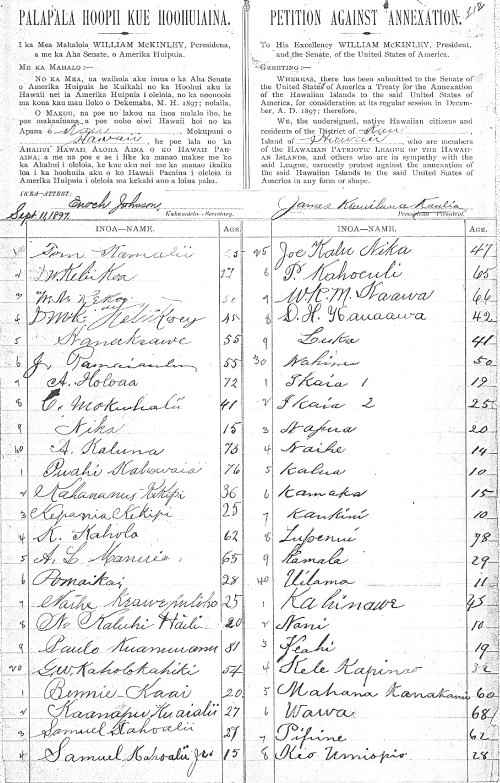 PALAPALA HOOPII KUE HOOHUIAINA.
I ka Mea Mahaloia WILLIAM McKINLEY, Peresidena,
a me ka Aha Senate, o Amerika Huipuia.
ME KA MAHALO:—
NO KA MEA, ua waihoia aku imua o ka Aha Senate
o Amerika Huipuia he Kuikahi no ka Hoohui aku ia
Hawaii nei ia Amerika Huipuia i oleloia, no ka noonooia
ma kona kau mau iloko o Dekemaba, M. H. 1897; nolaila,
O MAKOU, na poe no lakou na inoa malalo iho, he
poe makaainana a poe noho oiwi Hawaii hoi no ka
Apana o Kau, Mokupuni o
Hawaii, he poe lala no ka
AHAHUI HAWAII ALOHA AINA O KO HAWAII PAE-
AINA; a me na poe e ae i like ka manao makee me ko
ka Ahahui i oleloia, ke kue aku nei me ka manao ikaika
loa i ka hoohuiia aku o ko Hawaii Paeaina i oleloia ia
Amerika Huipuia i oleloia ma kekahi ano a loina paha.
IKEA—ATTEST:
Sept 11, 1897. Enoch Johnson,
Kakauolelo—Secretary.
PETITION AGAINST ANNEXATION.
To His Excellency WILLIAM McKINLEY, President,
and the Senate, of the United States of America.
GREETING:—
WHEREAS, there has been submitted to the Senate of
the United States of America a Treaty for the Annexation
of the Hawaiian Islands to the said United States of
America, for consideration at its regular session in Decem-
ber, A. D. 1897; therefore,
WE, the undersigned, native Hawaiian citizens
and residents of the District of Kau
Island of Hawaii, who are members
of the HAWAIIAN PATRIOTIC LEAGUE OF THE HAWAII-
AN ISLANDS, and others who are in sympathy with the
said League, earnestly protest against the annexation of
the said Hawaiian Islands to the said United States of
America in any form or shape.
James Keauiluna Kaulia
Peresidena—President.
INOA—NAME. AGE.
Tom Kamalii
2 27
3
4 45
5 55
6 55
7 A. Holoaa 72
8 C. Mokuhalii 41
9 Nika 15
10 A. Kaluna 73
1 Puahi Kabowaia 76
2 Kahananui Kekipi 36
3 Kepania Kekipi 25
4 K. Kahola 62
5 A. L. Manuia 65
6 Pomaikai 28
7 Naihe 25
8 Kaluhi Haili 20
9 Paulo Kuamuamu 81
20 G. W. Kaholokahiki 54
1 Bennie Kaai 20
2 Kaanapu Kuaialii 27
3 Samuel Kahoalii 27
4 Samuel Kahoalii Jr. 15
INOA—NAME. AGE.
25 Joe Kalu Nika 47
6 P. Kahoeuli 65
7 W. K. M. Kaawa 66
8 D. H. Kauaawa 42
9 Luka 41
30 Wahine 50
1 Ikaia 1 19
2 Ikaia 2 25
3 Napua 20
4 Naihe 14
5 Kalua 10
6 Kamaka 15
7 Kaukini 10
8 Lupenui 78
9 Kamala 29
40 Uilama 11
1 Kahinawe 45
2 Nani 10
3 Keahi 19
4 Kele
5 Mahana Kanakanui 60
6 Wawa 68
7 Pipine 62
8 Kio Umiopio 28